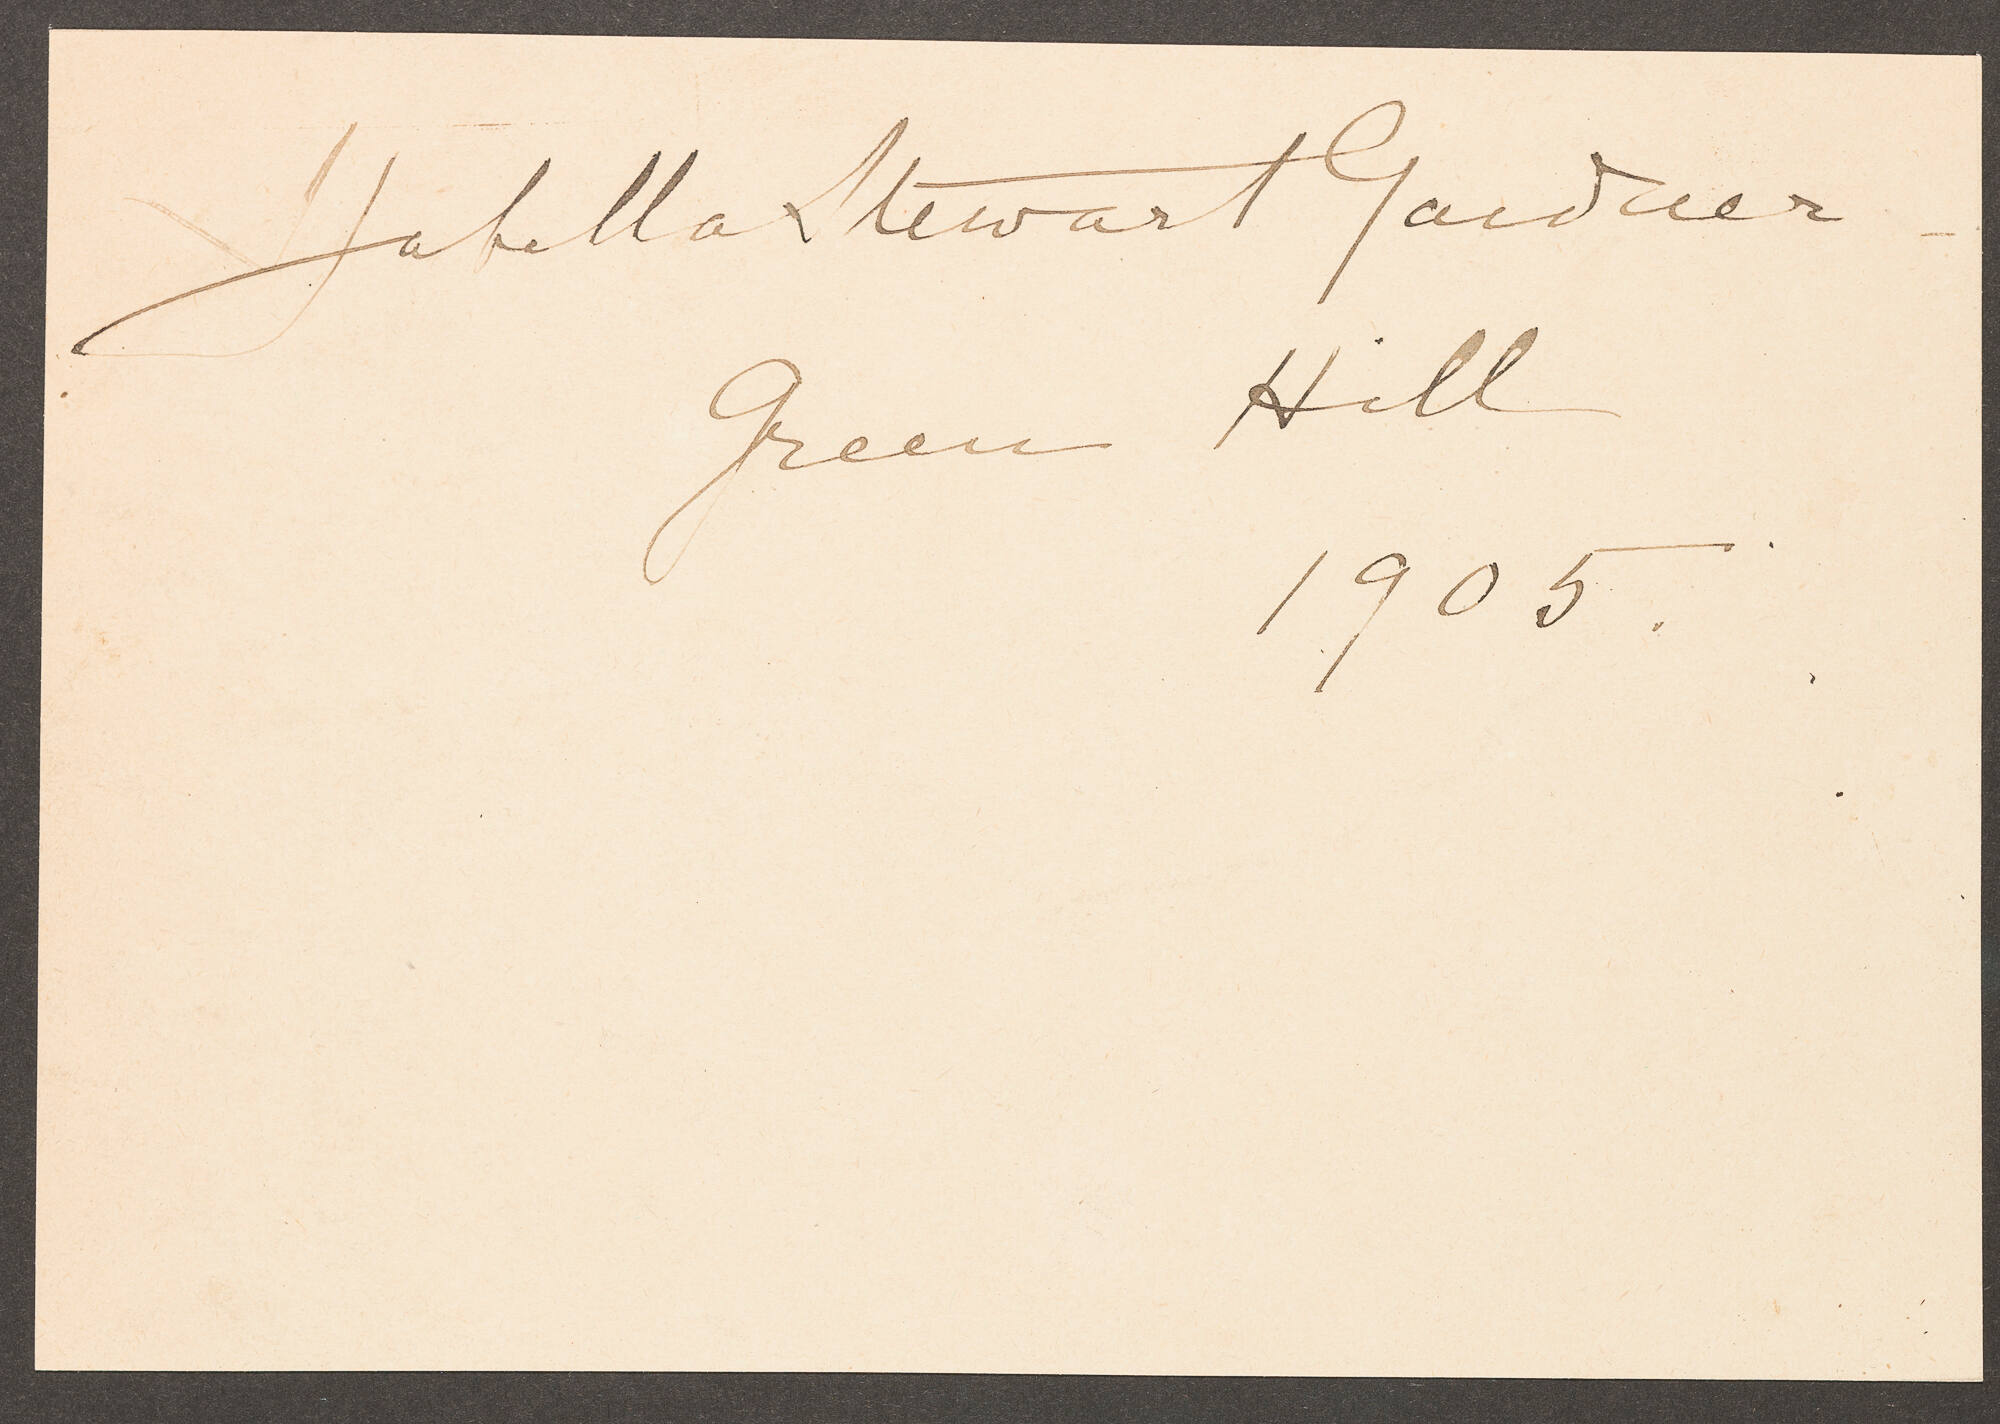 Isabella Stewart Gardner -
Green Hill
1905.